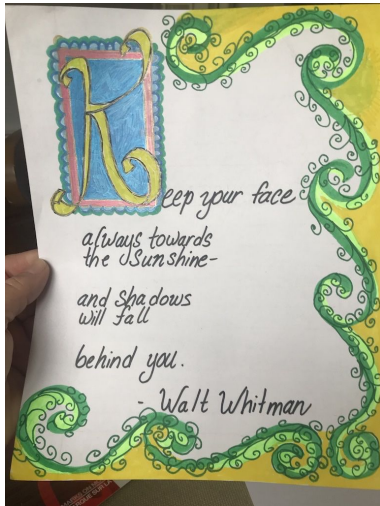 Keep your face
always towards
the Sunshine-
and shadows
will fall
behind you.
- Walt Whitman